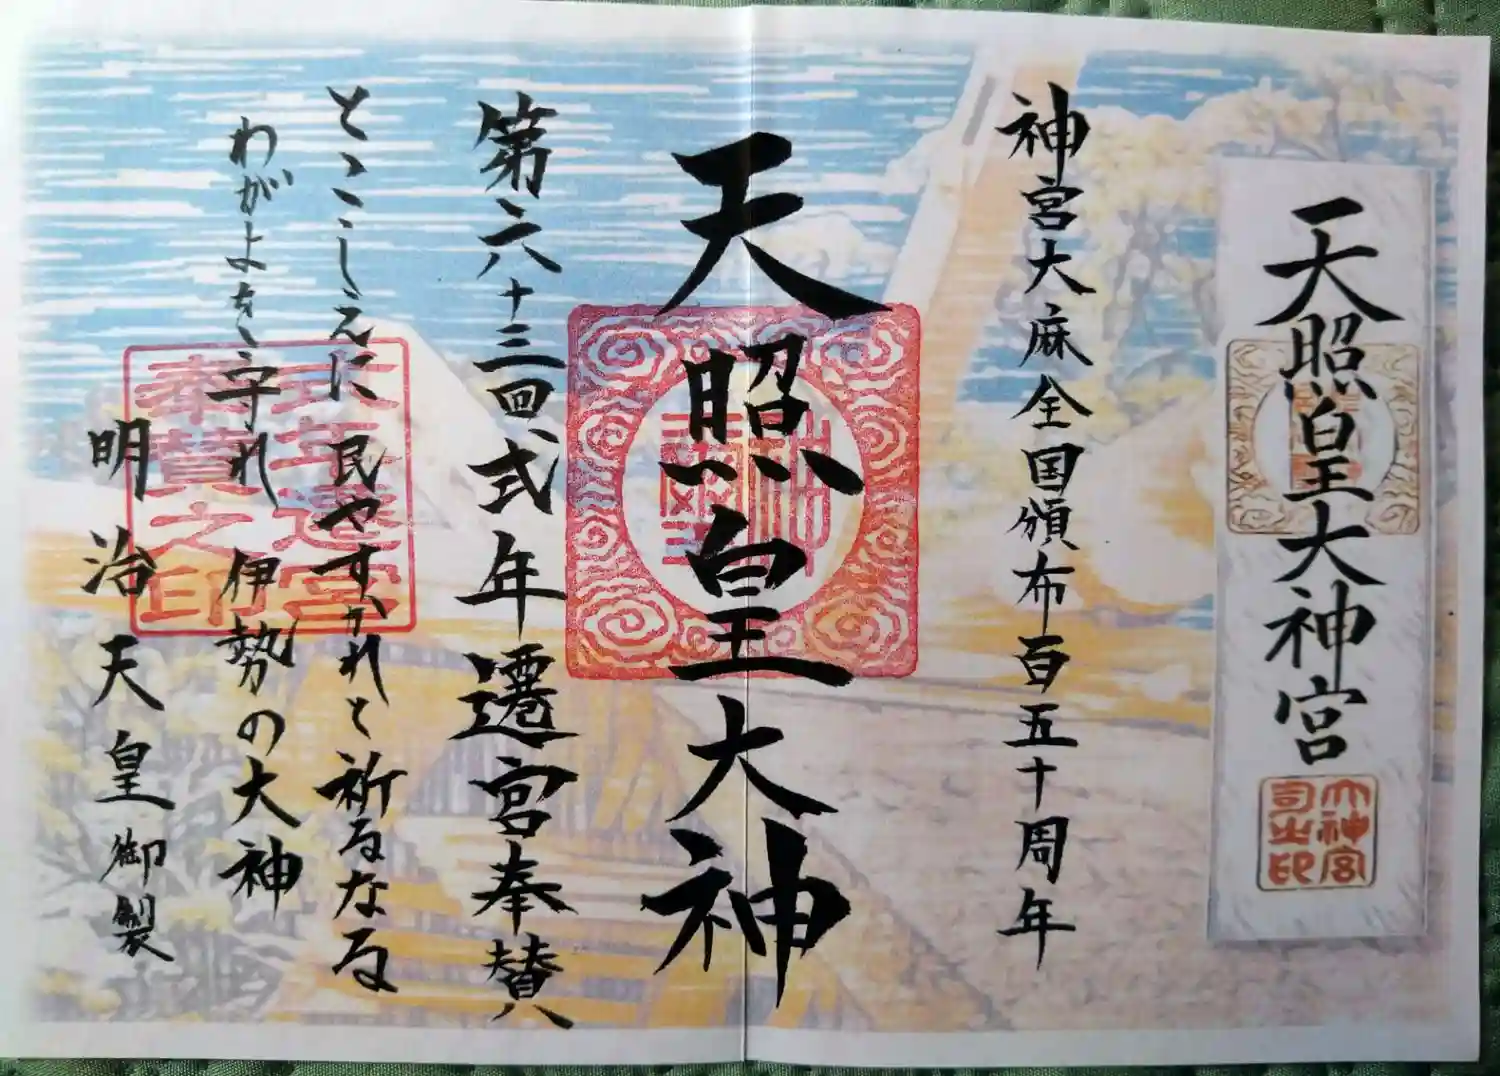 天照皇大神宮
大神宮
司之印
神宮大麻全国頒布百五十周年
天照皇大神
第六十三回式年遷宮奉賛
とこしえに 民やすかれと祈るなる
わがよを守れ 伊勢の大神
明治天皇御製
式年遷宮
奉賛之印